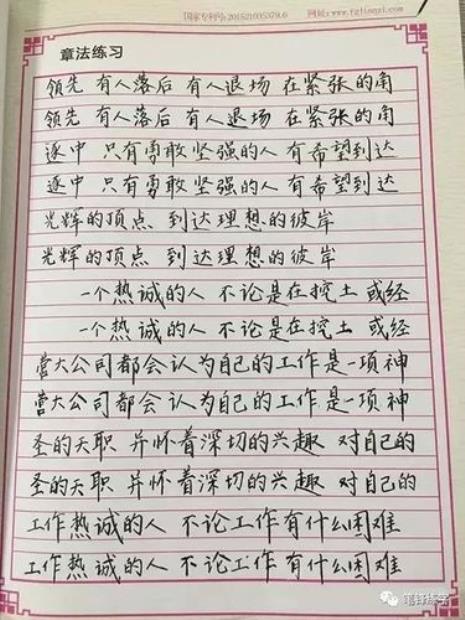 国家专利号:201521035379.6 网址:www.fzlianzi.com
章法练习
领先 有人落后 有人退场 在紧张的角
领先 有人落后 有人退场 在紧张的角
逐中 只有勇敢坚强的人 有希望到达
逐中 只有勇敢坚强的人 有希望到达
光辉的顶点 到达理想的彼岸
光辉的顶点 到达理想的彼岸
一个热诚的人 不论是在挖土 或经
一个热诚的人 不论是在挖土 或经
营大公司都会认为自己的工作是一项神
营大公司都会认为自己的工作是一项神
圣的天职 并怀着深切的兴趣 对自己的
圣的天职 并怀着深切的兴趣 对自己的
工作热诚的人 不论工作有什么困难
工作热诚的人 不论工作有什么困难
笔锋练字